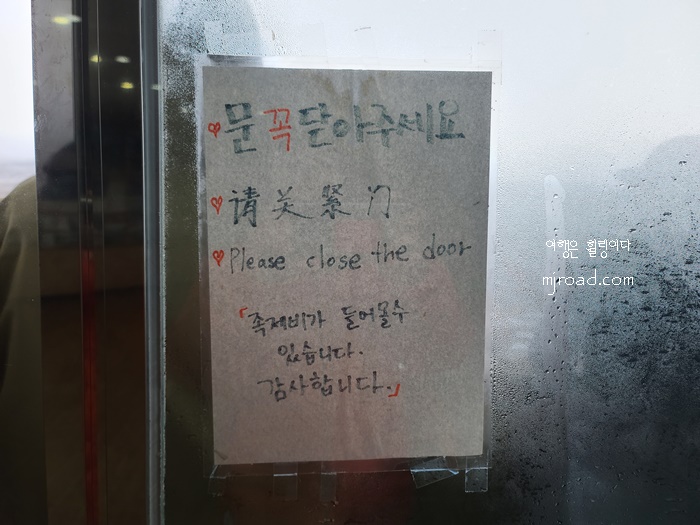 ♥문 꼭 닫아주세요
♥请关紧门
♥Please close the door
「족제비가 들어올수
있습니다.
감사합니다.」
여행은 힐링이다
mjroad.com